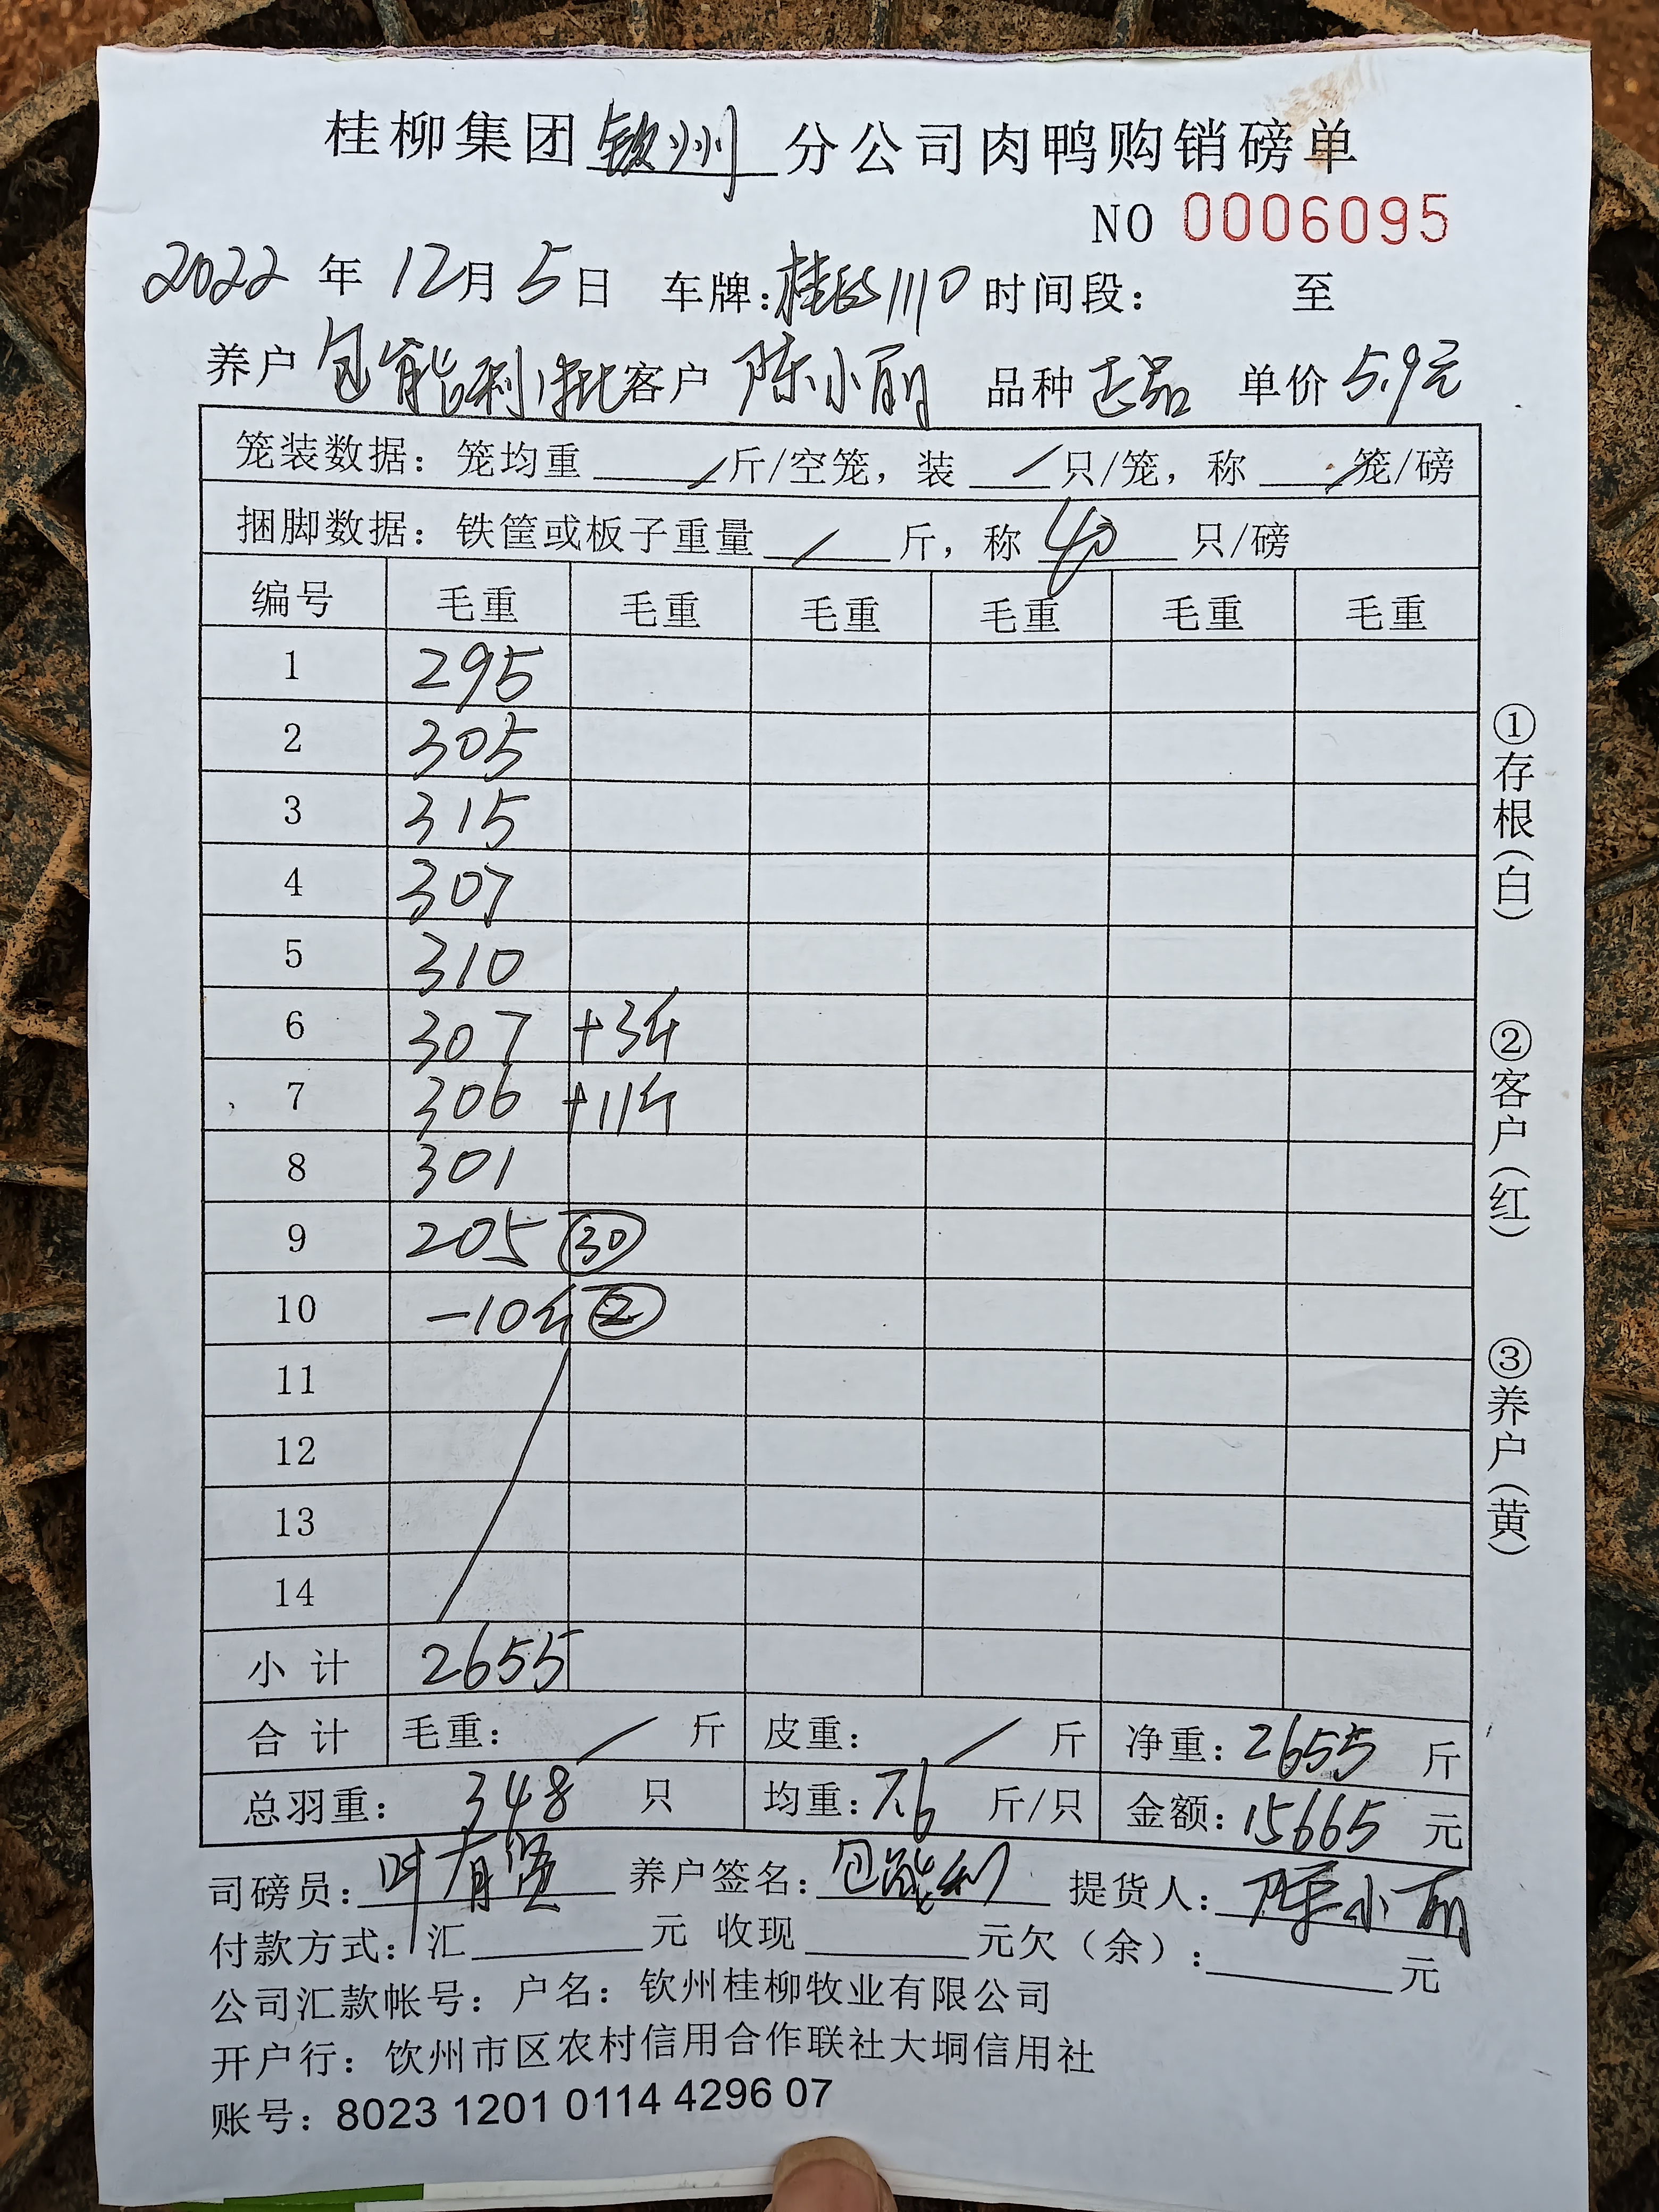 桂柳集团 钦州 分公司肉鸭购销磅单
NO 0006095
2022 年 12月 5日 车牌: 时间段: 至
养户 包能利 客户 陈小丽 品种 正品 单价 5.9元
笼装数据: 笼均重 / 斤/空笼, 装 / 只/笼, 称 / 笼/磅
捆脚数据: 铁筐或板子重量 / 斤, 称 40 只/磅
编号 毛重 毛重 毛重 毛重 毛重 毛重
1 295
2 305
3 315
4 307
5 310
6 307 +3斤
7 306 +11斤
8 301
9 205 30
10 -10斤 2
11
12
13
14
小 计 2655
合 计 毛重: / 斤 皮重: / 斤 净重: 2655 斤
总羽重: 348 只 均重: 7.6 斤/只 金额: 15665 元
司磅员: 叶有贤 养户签名: 包能利 提货人: 陈小丽
付款方式: 汇 元 收现 元欠(余): 元
公司汇款帐号: 户名: 钦州桂柳牧业有限公司
开户行: 钦州市区农村信用合作联社大垌信用社
账号: 8023 1201 0114 4296 07
①存根(白)
②客户(红)
③养户(黄)